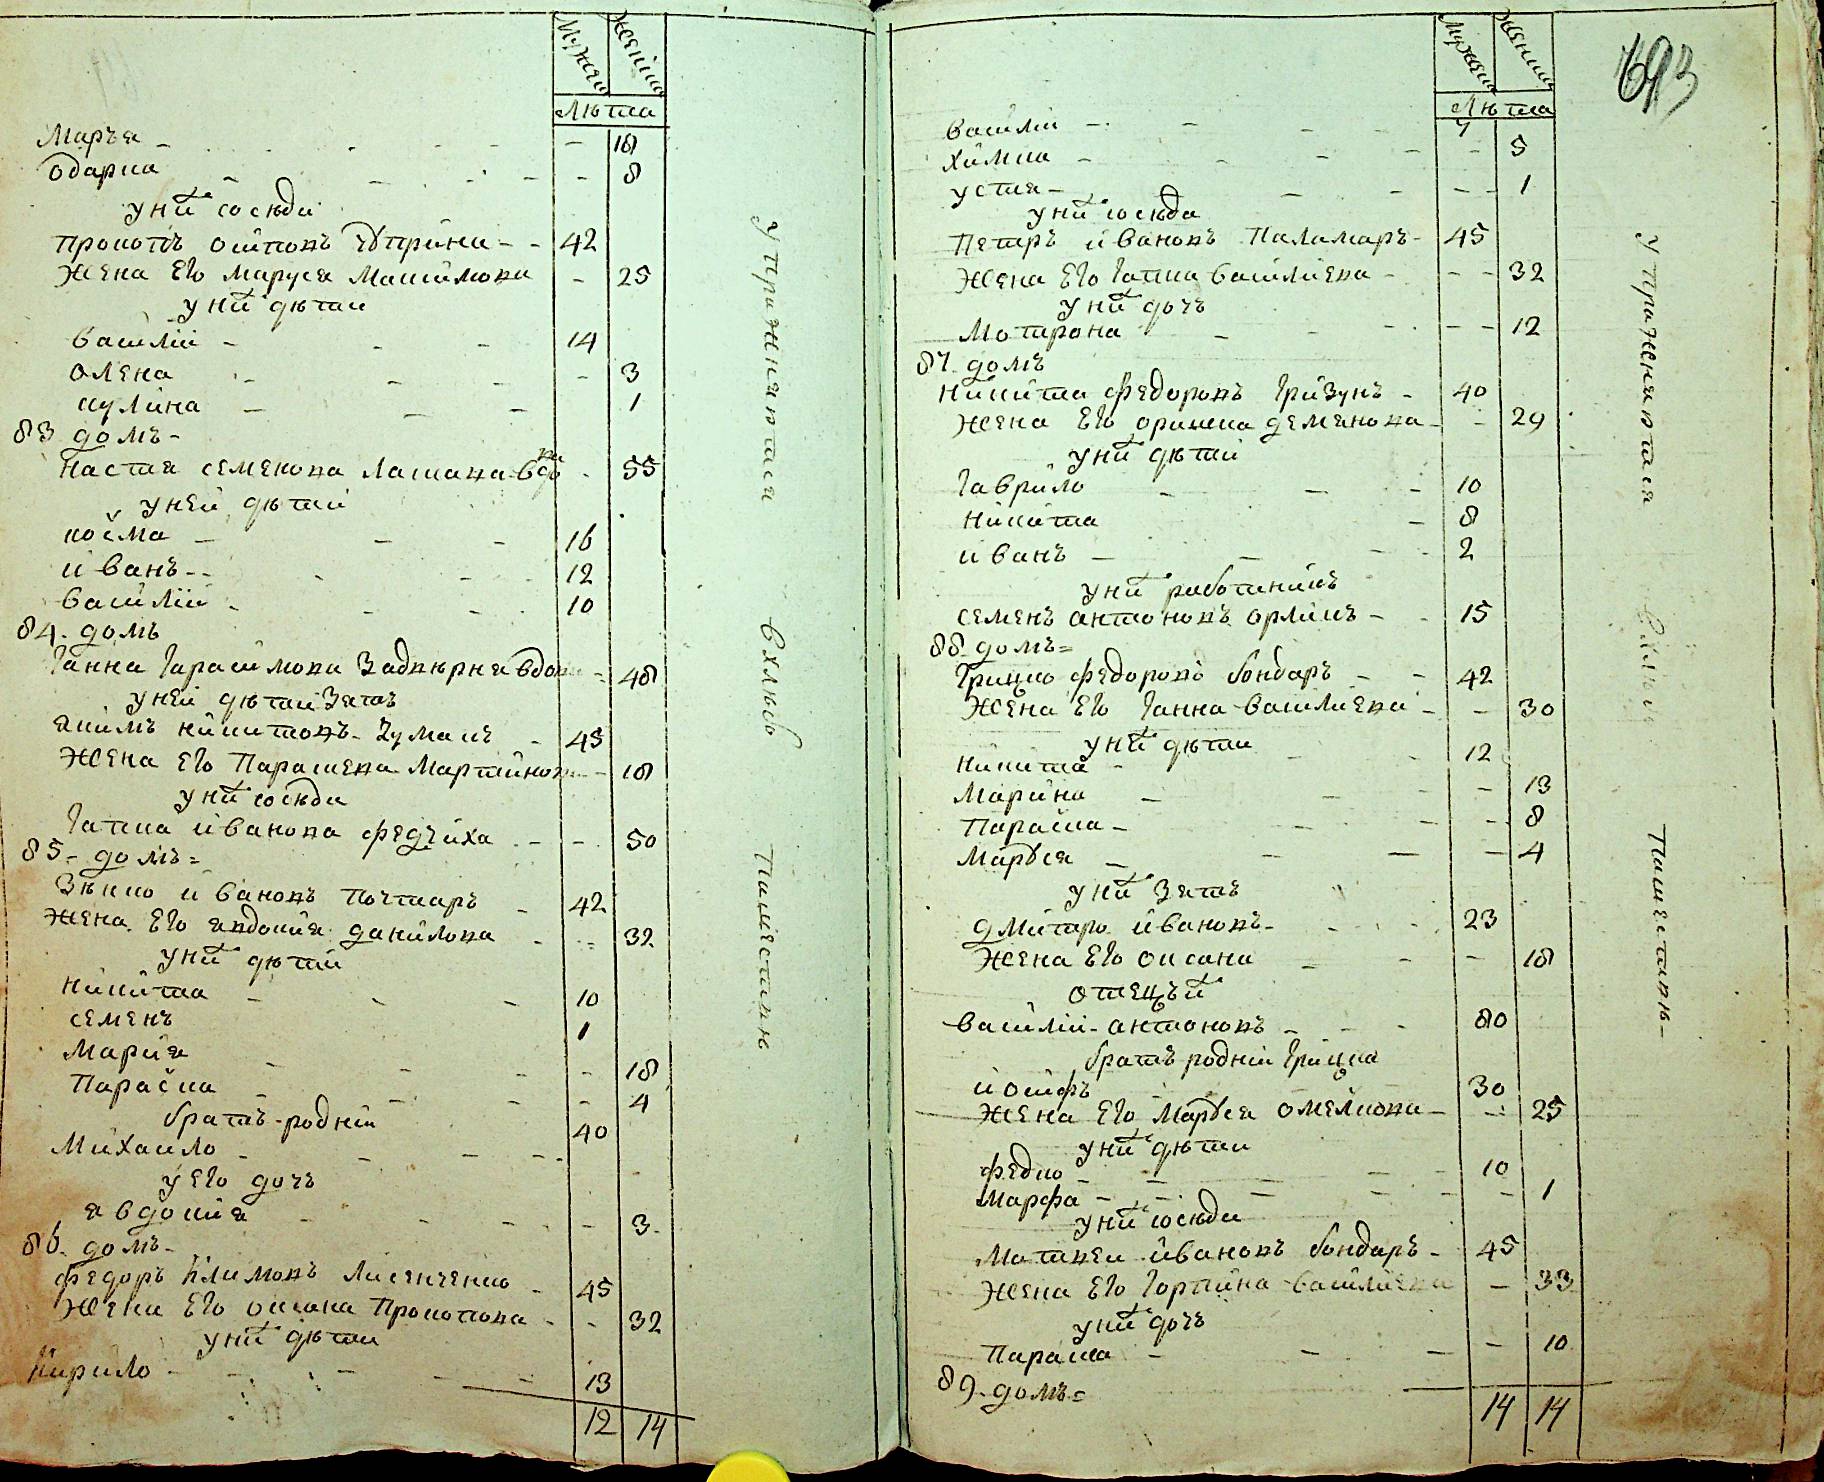 Мужеск Женска
Лѣта
Марѣя - - - 18
Одарка - - - 8
у ниⷯ сосѣди
Прокопъ Осиповъ Чуприна - - 42
Жена его Маруся Максимова - 25
у ниⷯ дѣти
Василій - - - 14
Олена - - - 3
Кулина - - - 1
83 домъ -
Настя Семенова вдова - 55
у ней дѣти
Козма - - - 16
Иванъ - - - 12
Василій - - - 10
84 домъ
Ганна Гарасимова Задвѣрня вдова - 48
у ней дѣти зять
Якимъ Никитовъ Чумакъ - 45
Жена его Параскева Мартинова - 18
у ниⷯ сосѣди
Гапка Иванова Федчиха - - 50
85 домъ =
Зѣнко Ивановъ Почтаръ - 42
Жена его Явдокія Данилова - 32
у ниⷯ дѣти
Никита - - - 10
Семенъ 1
Марія - - - 18
Параска - - - 4
братъ родній
Михайло - - - 40
у его дочъ
Явдокія - - - 3
86 домъ -
Федоръ Климовъ Лисенченко - 45
Жена его Оксана Прокопова - - 32
у ниⷯ дѣти
Кирило - - - 13
12 14
Упражняются
в хлѣбо
пашествѣ
Мужеск Женска
693
Лѣта
Василій - - - 7
Химка - - - 5
Устя - - - 1
у ниⷯ сосѣди
Петръ Ивановъ Паламаръ - 45
Жена его Гапка Василіева - - 32
у ниⷯ дочъ
Мотрона - - - 12
87 домъ
Никита Федоровъ Гризунъ - 40
Жена его Оришка Деменова - - 29
у ниⷯ дѣти
Гаврило - - - 10
Никита - 8
Иванъ - - - 2
у ниⷯ работникъ
Семенъ Антоновъ Орликъ - 15
88 домъ =
Грицко Федоровъ Бондаръ - - 42
Жена его Ганна Василіева - - 30
у ниⷯ дѣти
Никита - - - 12
Марина - - - 13
Параска - - - 8
Маруся - - - 4
у ниⷯ зять
Дмитро Ивановъ - - 23
Жена его Оксана - - - 18
отецъ иⷯ
Василій Антоновъ - - - 80
братъ родній Грицка
Иосифъ - 30
Жена его Маруся Омелкова - - 25
у ниⷯ дѣти
Федко - - - 10
Марфа - - - 1
у ниⷯ сосѣди
Матвеи Ивановъ Бондаръ - 45
Жена его Горпина Василіева - 33
у ниⷯ дочъ
Параска - - - 10
89 домъ =
14 14
Упражняются
пашествѣ